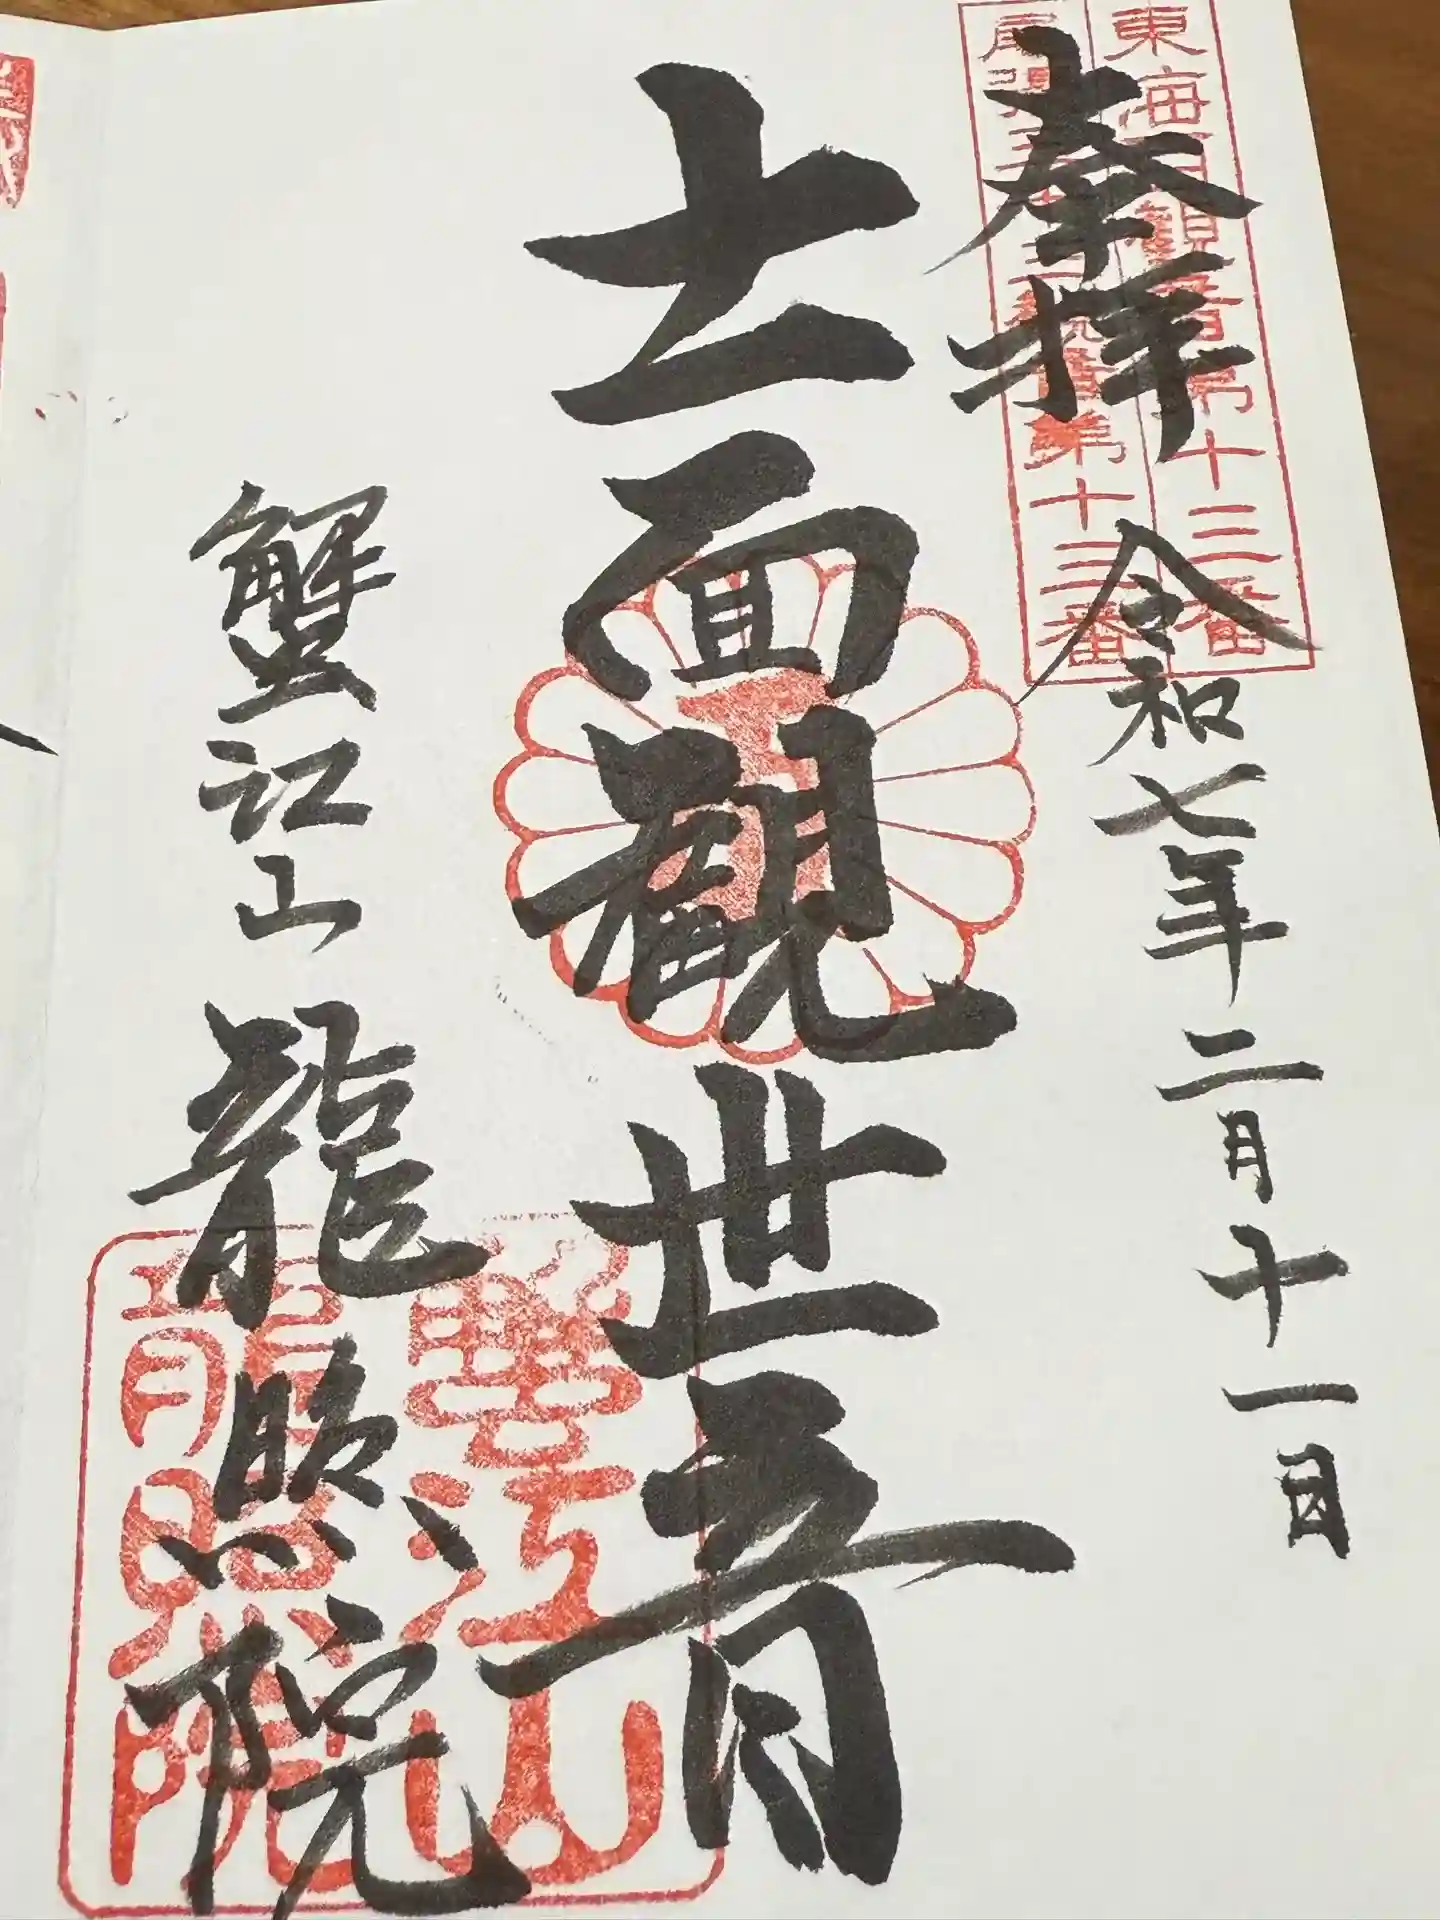 東海百観音第十三番
尾張三十三観音第十三番
奉拝
令和七年二月十一日
十一面観世音
蟹江山
龍照院
蟹江山
龍照院